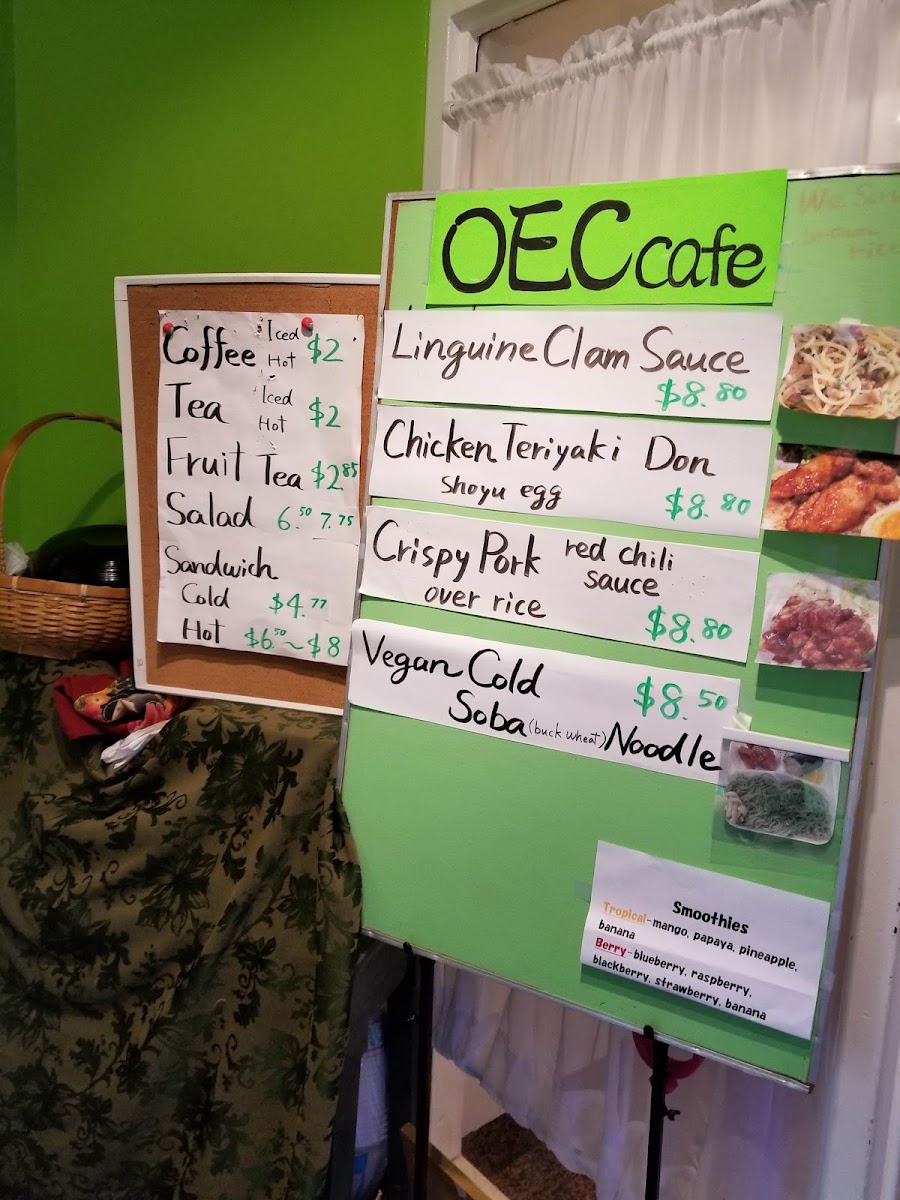 Coffee Iced Hot $2
Tea Iced Hot $2
Fruit Tea $2.85
Salad 6.50 7.75
Sandwich
Cold $4.77
Hot $6.50 ~ $8
OEC cafe
Linguine Clam Sauce
$8.80
Chicken Teriyaki Don
Shoyu egg $8.80
Crispy Pork red chili
sauce
over rice $8.80
Vegan Cold $8.50
Soba (buck wheat) Noodle
Smoothies
Tropical-mango, papaya, pineapple,
banana
Berry-blueberry, raspberry,
blackberry, strawberry, banana